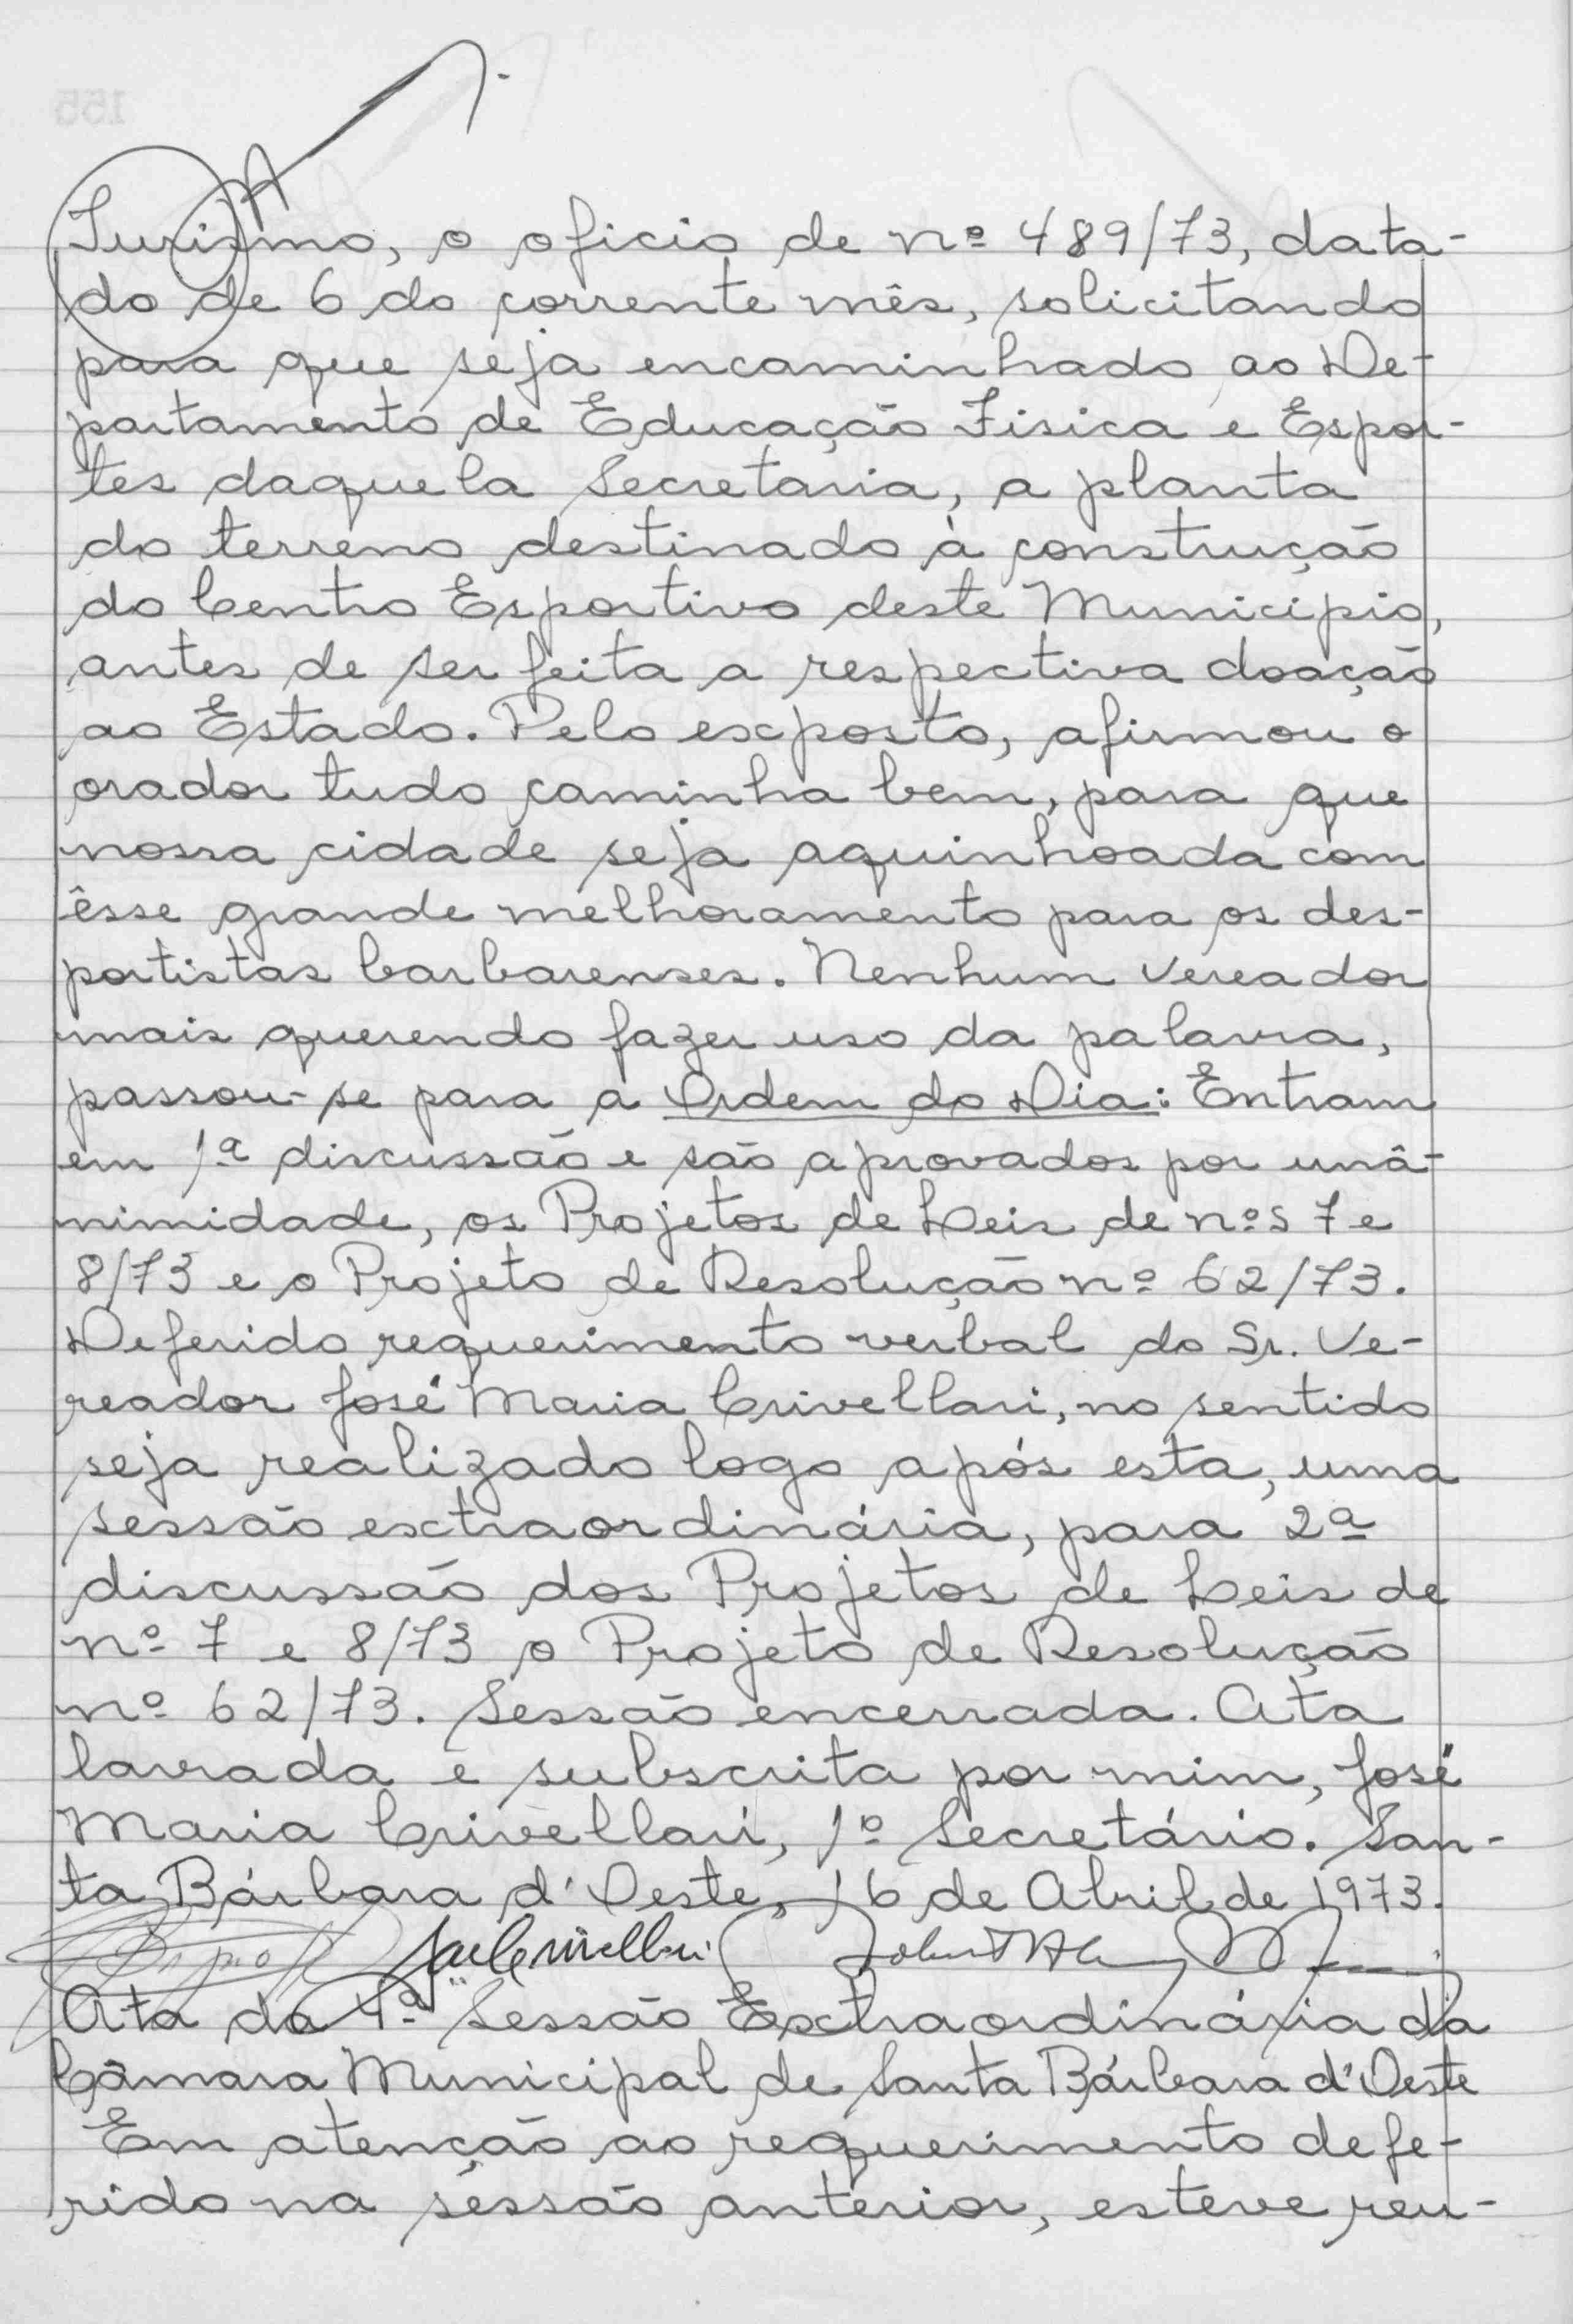 Turismo, o oficio de nº 489/73, data-
do de 6 do corrente mês, solicitando
para que seja encaminhado ao De-
partamento de Educação Fisica e Espor-
tes daquela Secretaria, a planta
do terreno destinado à construção
do Centro Esportivo deste Municipio,
antes de ser feita a respectiva doação
ao Estado. Pelo exposto, afirmou o
orador tudo caminha bem, para que
nossa cidade seja aquinhoada com
êsse grande melhoramento para os des-
portistas barbarenses. Nenhum Vereador
mais querendo fazer uso da palavra,
passou-se para a Ordem do Dia: Entram
em 1ª discussão e são aprovados por unâ-
nimidade, os Projetos de Leis de nºs 7 e
8/73 e o Projeto de Resolução nº 62/73.
Deferido requerimento verbal do Sr. Ve-
reador José Maria Crivellari, no sentido
seja realizado logo após esta, uma
sessão extraordinária, para 2ª
discussão dos Projetos de Leis de
nº 7 e 8/73 o Projeto de Resolução
nº 62/73. Sessão encerrada. Ata
lavrada e subscrita por mim, José
Maria Crivellari, 1º Secretário. San-
ta Bárbara d'Oeste, 16 de Abril de 1973.
Ata da 4ª Sessão Extraordinária da
Câmara Municipal de Santa Bárbara d'Oeste
Em atenção ao requerimento defe-
rido na sessão anterior, esteve reu-